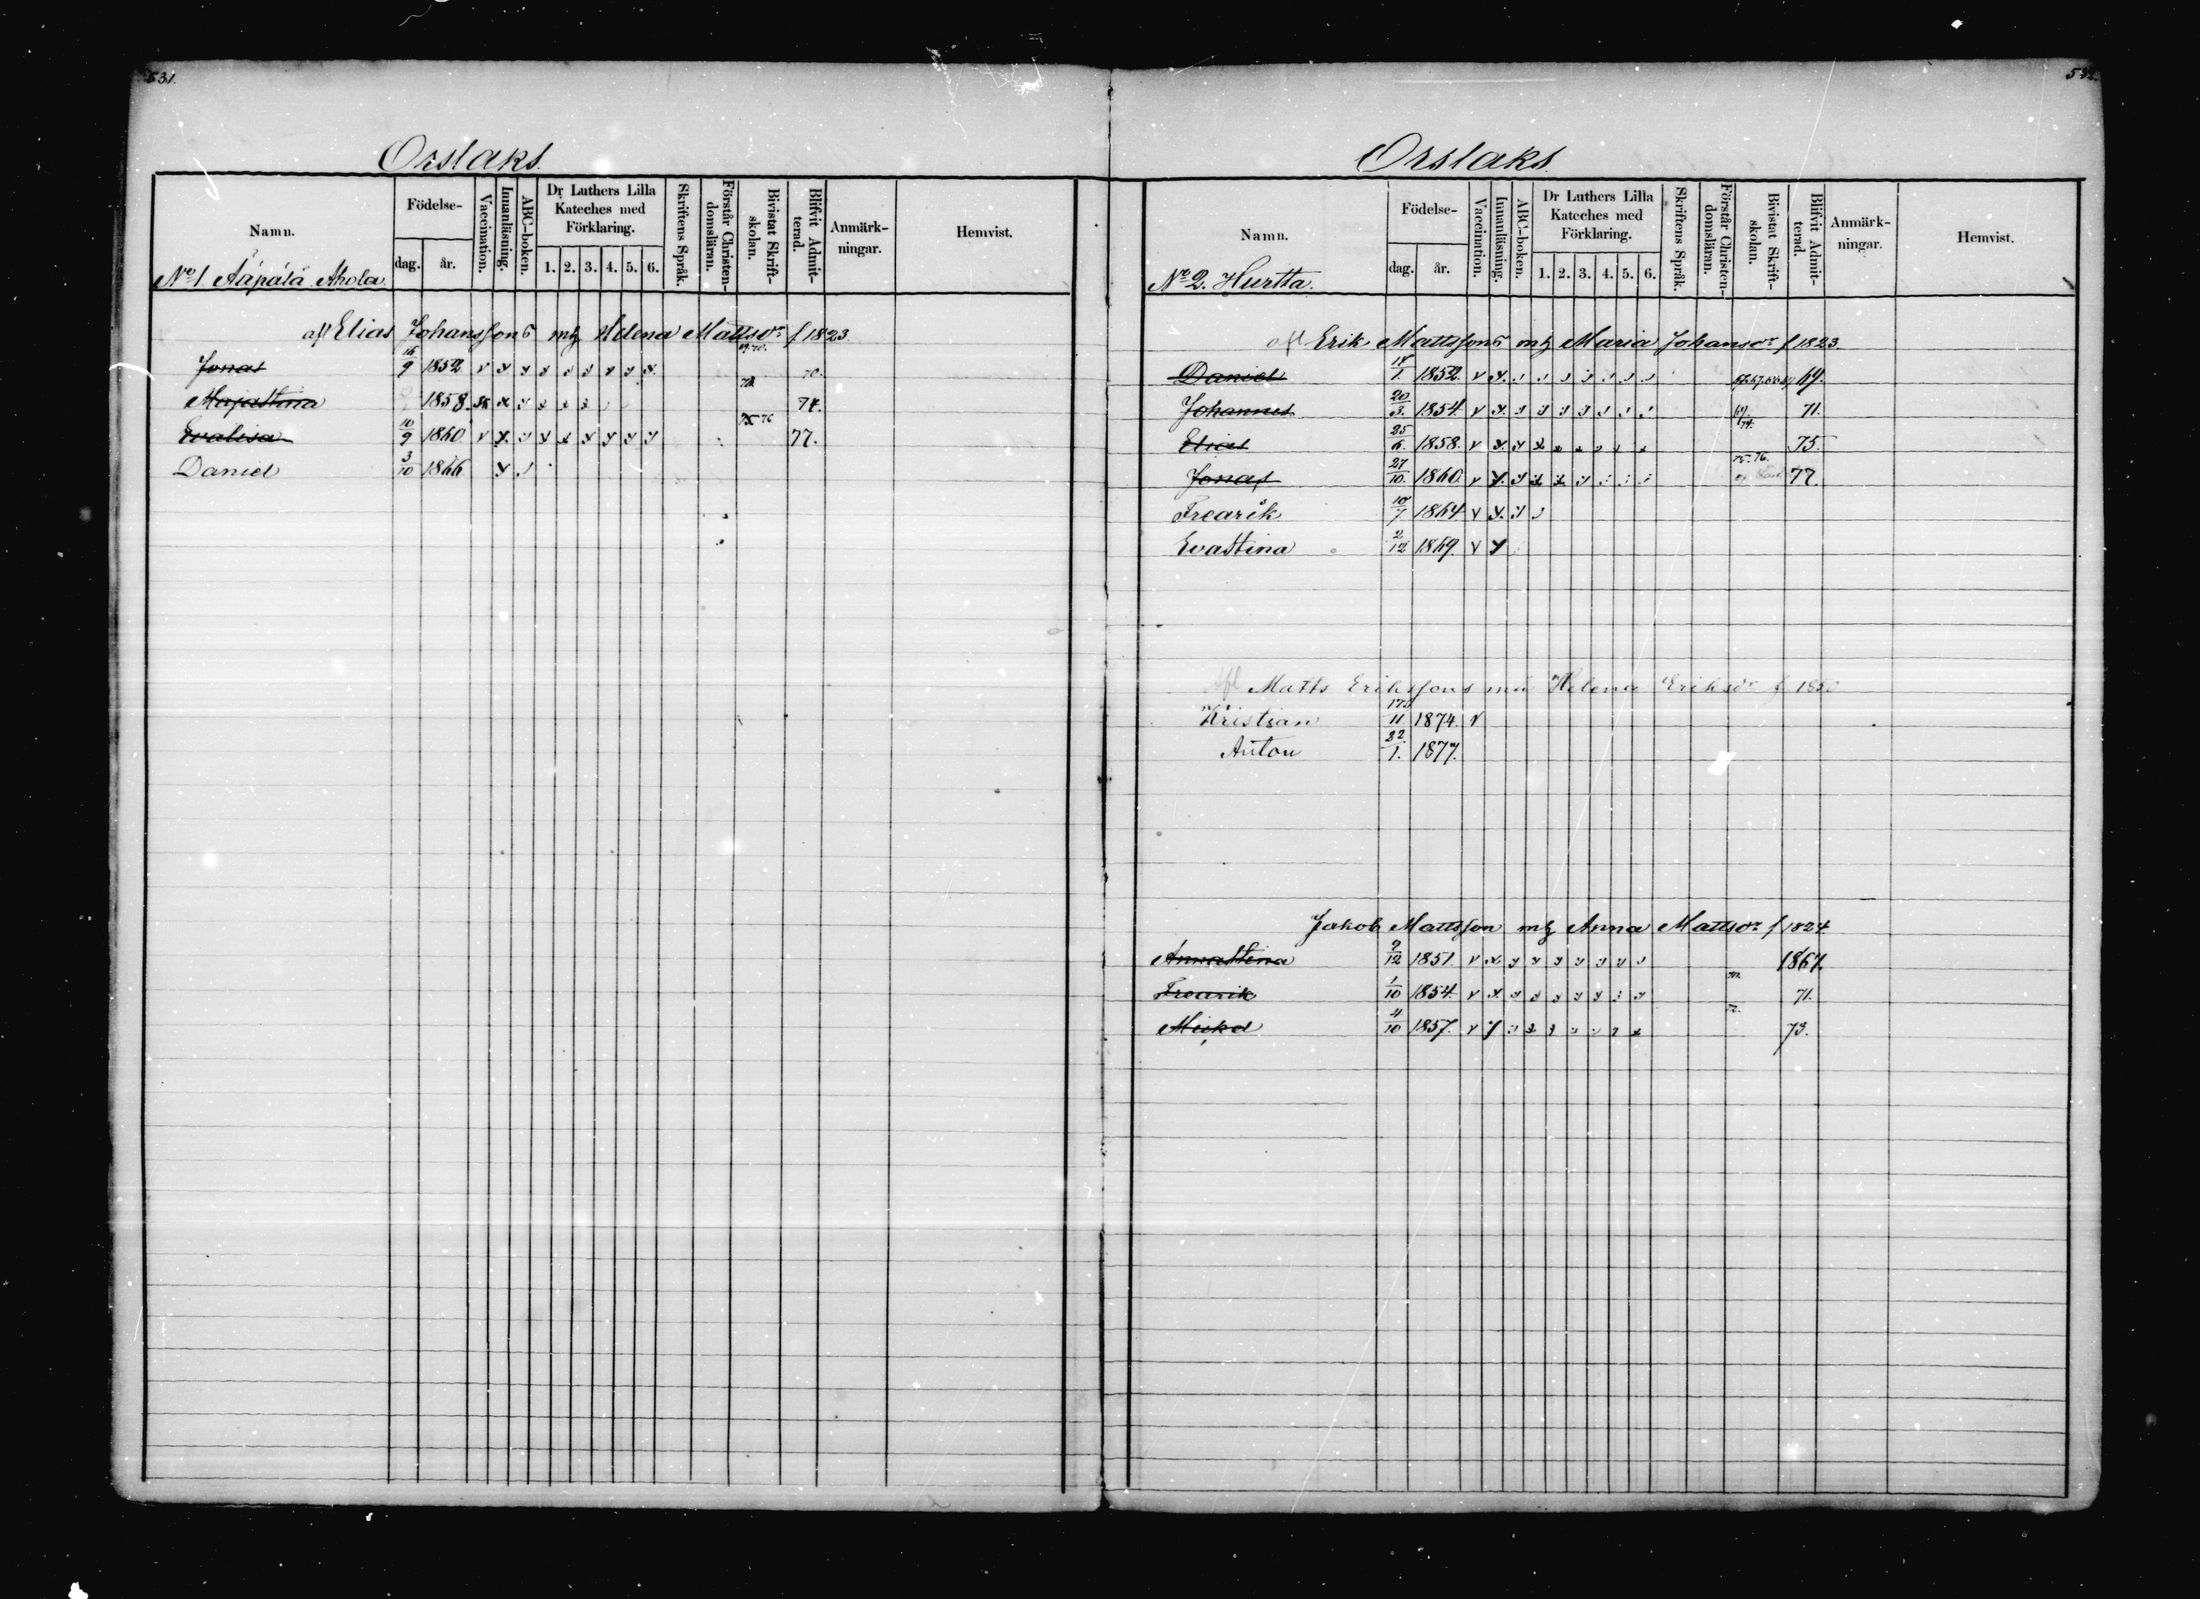 531.
Orslaks.
Namn.
Födelse-
dag. år.
Vaccination.
Innanläsning.
ABC-boken.
Dr Luthers Lilla
Kateches med
Förklaring.
1. 2. 3. 4. 5. 6.
Skriftens Språk.
Förstår Christen-
domsläran.
Bivistat Skrift-
skolan.
Blifvit Admit-
terad.
Anmärk-
ningar.
Hemvist.
No 1 Aapala Ahola
af Elias Johanssons mh Helena Mattsdr f 1823
Jonas 16/9 1852 69.70. 70.
Majastina 1858. 74.
Evalisa 10/9 1860 75 76 77.
Daniel 3/10 1866
532.
Orslaks.
Namn.
Födelse-
dag. år.
Vaccination.
Innanläsning.
ABC-boken.
Dr Luthers Lilla
Kateches med
Förklaring.
1. 2. 3. 4. 5. 6.
Skriftens Språk.
Förstår Christen-
domsläran.
Bivistat Skrift-
skolan.
Blifvit Admit-
terad.
Anmärk-
ningar.
Hemvist.
No 2. Hurtta.
afl Erik Mattssons mh Maria Johansdr f 1823.
Daniel 1852. 69.
Johannes 20/3. 1854 71.
Elias 25/6. 1858. 74. 75.
Jonas 27/10. 1860. 75. 76. 77.
Fredrik 10/7 1864
Evastina 2/12 1869.
Afl Matts Erikssons mu Helena Eriksdr f 1850
Kristian 17/11 1874.
Anton 22/1. 1877.
Jakob Mattsson mh Anna Mattsdr f 1824
Annastina 9/12 1851. 1867.
Fredrik 1/10 1854. 71.
Mickel 4/10 1857. 72. 73.